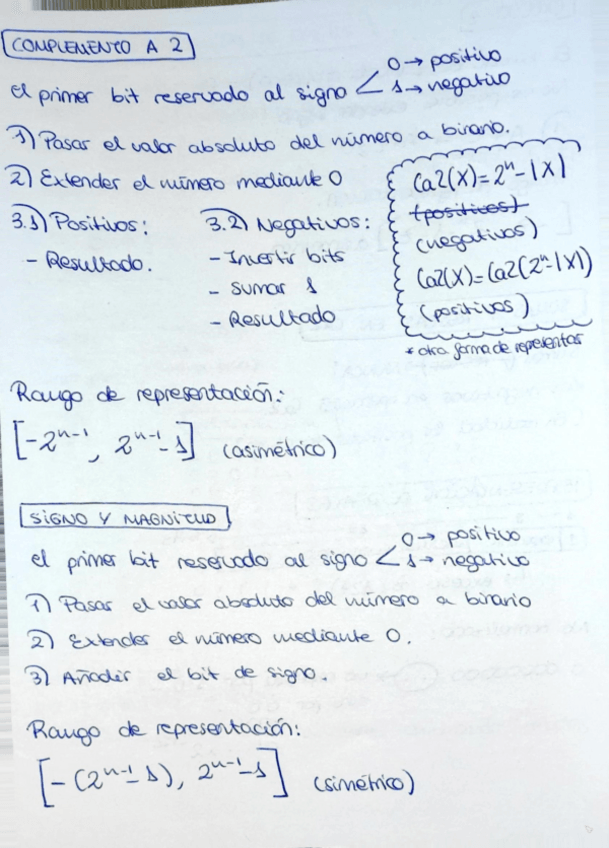 COMPLEMENTO A 2
el primer bit reservado al signo < 0 → positivo
1 → negativo
1) Pasar el valor absoluto del número a binario.
2) Extender el número mediante 0
3.1) Positivos:
- Resultado.
3.2) Negativos:
- Invertir bits
- Sumar 1
- Resultado
Ca2(X) = 2^n - |X|
(positivos)
(negativos)
Ca2(X) = Ca2(2^n - |X|)
(positivos)
* otra forma de representar
Rango de representación:
[-2^n-1, 2^n-1 - 1] (asimétrico)
SIGNO Y MAGNITUD
el primer bit reservado al signo < 0 → positivo
1 → negativo
1) Pasar el valor absoluto del número a binario
2) Extender el número mediante 0.
3) Añadir el bit de signo.
Rango de representación:
[-(2^n-1 - 1), 2^n-1 - 1] (simétrico)